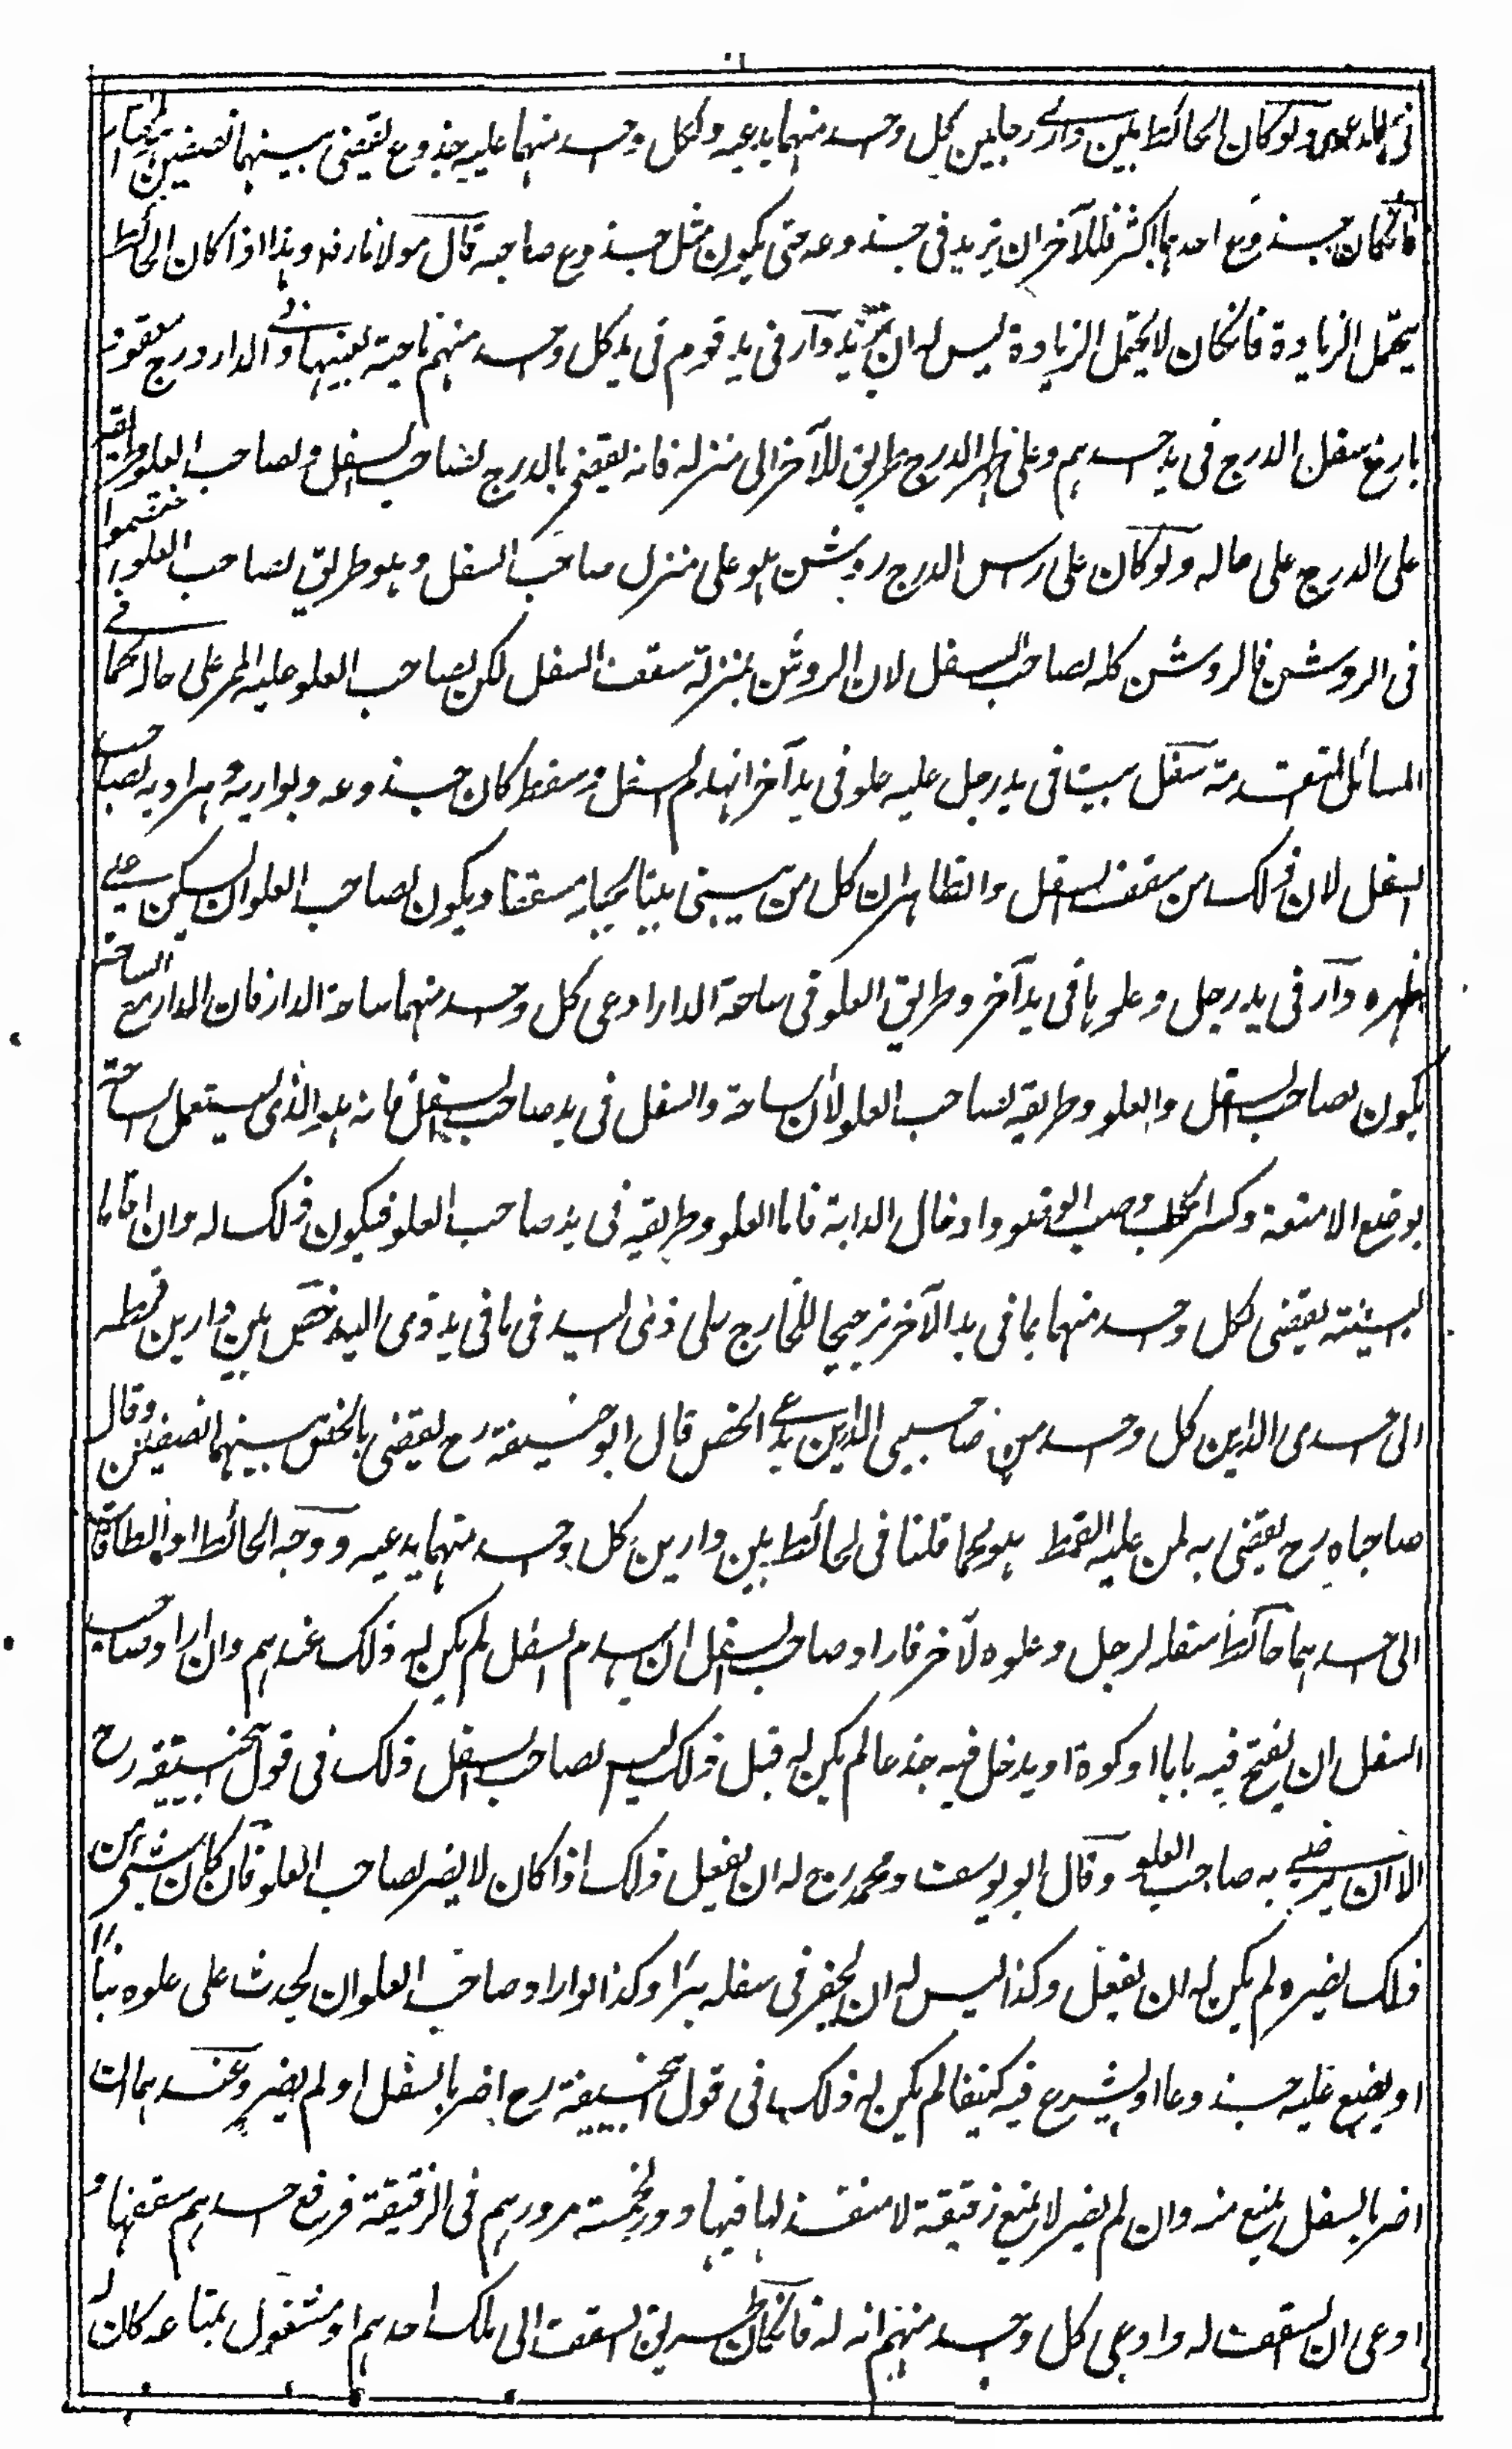 ولو كان الحائط بين داري رجلين كل واحد منهما يدعيه ولكل واحد منهما عليه جذوع يقضى بينهما نصفين
فانكان جذوع احدهما اكثر فللآخر ان يزيد في جذوعه حتى يكون مثل جذوع صاحبه قال مولانا رضه وهذا اذا كان الحائط
يحتمل الزيادة فانكان لا يحتمل الزيادة ليس له ان يزيد دار في يد قوم في يد كل واحد منهم ناحية بعينها وفي الدار درج معقود
بازغ سفل الدرج في يد احدهم وعلى ظهر الدرج طريق للآخر الى منزله فانه يقضى بالدرج لصاحب السفل ولصاحب العلو طريقه
على الدرج على حاله ولو كان على رأس الدرج روشن هو على منزل صاحب السفل وهو طريق لصاحب العلو اختصموا
في الروشن فالروشن كله لصاحب السفل لان الروشن بمنزلة سقف السفل لكن لصاحب العلو عليه الممر على حاله كما في
المسائل المتقدمة سفل بيت في يد رجل عليه علو في يد آخر انهدم السفل وسقط كان جذوعه وبواريه وهراديه لصاحب
السفل لان ذلك من سقف السفل والظاهر ان كل من يبني بيتا يجعله مسقفا ويكون لصاحب العلو ان يسكن على
ظهره دار في يد رجل وعلوها في يد آخر وطريق العلو في ساحة الدار ادعى كل واحد منهما ساحة الدار فان الدار مع الساحة
يكون لصاحب السفل والعلو وطريقه لصاحب العلو لأن الساحة والسفل في يد صاحب السفل فانه هو الذي يستعمل الساحة
بوضع الامتعة وكسر الحطب وصب الوضوء وادخال الدابة فاما العلو وطريقه في يد صاحب العلو فيكون ذلك له وان اقاما
البينة يقضى لكل واحد منهما بما في يد الآخر ترجيحا للخارج على ذي اليد في ما في يد ذي اليد خص بين دارين قمطه
الى احدى الدارين كل واحد من صاحبي الدارين يدعي الخص قال ابو حنيفة رح يقضى بالخص بينهما نصفين وقال
صاحباه رح يقضى به لمن عليه القمط هو كما قلنا في الحائط بين دارين كل واحد منهما يدعيه ووجه الحائط او الطاقات
الى احدهما حائط سفله لرجل وعلوه لآخر فاراد صاحب السفل ان يهدم السفل لم يكن له ذلك عندهم وان اراد صاحب
السفل ان يفتح فيه بابا او كوة او يدخل فيه جذعا لم يكن له قبل ذلك ليس لصاحب السفل ذلك في قول ابي حنيفة رح
الا ان يرضى به صاحب العلو وقال ابو يوسف ومحمد رح له ان يفعل ذلك اذا كان لا يضر لصاحب العلو فان كان شيء من
ذلك يضره لم يكن له ان يفعل وكذا ليس له ان يحفر في سفله بئرا وكذا لو اراد صاحب العلو ان يحدث على علوه بناء
او يضع عليه جذوعا او يشرع فيه كنيفا لم يكن له ذلك في قول ابي حنيفة رح اضر بالسفل او لم يضر وعندهما ان
اضر بالسفل يمنع منه وان لم يضر لا يمنع زقيقة لا منفذ لها فيها دور لخمسة مرورهم في الزقيقة فرفع احدهم سقفها و
ادعى ان السقف له وادعى كل واحد منهم انه له فانكان طريق السقف الى ملك احدهم او مشغول بمتاعه كان